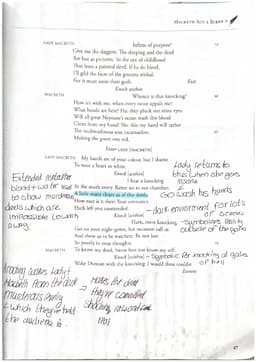 MACBETH ACT 2 SCENE 2
LADY MACBETH Infirm of purpose!
Give me the daggers. The sleeping and the dead
Are but as pictures; 'tis the eye of childhood
That fears a painted devil. If he do bleed,
I'll gild the faces of the grooms withal,
For it must seem their guilt. Exit
Knock within
MACBETH Whence is that knocking?
How is't with me, when every noise appals me?
What hands are here! Ha: they pluck out mine eyes.
Will all great Neptune's ocean wash this blood
Clean from my hand? No: this my hand will rather
The multitudinous seas incarnadine,
Making the green one red.
Enter LADY [MACBETH]
LADY MACBETH My hands are of your colour, but I shame
To wear a heart so white.
Knock [within]
I hear a knocking
At the south entry. Retire we to our chamber;
A little water clears us of this deed.
How easy is it then! Your constancy
Hath left you unattended.
Knock [within]
Hark, more knocking.
Get on your night-gown, lest occasion call us
And show us to be watchers. Be not lost
So poorly in your thoughts.
MACBETH To know my deed, 'twere best not know my self.
Knock [within]
Wake Duncan with thy knocking: I would thou couldst.
Exeunt
Lady returns to
this when she goes
GO wash his hands
Extended metaphor
blood + water used
to show murderous
deeds which are
impossible to wash
away.
dark enviorment for lots
of scenes
- symbolises reality
outside of the gate
- Symbolic for knocking at gates
of hell
Macbeth from the dark
murderous reality
the audience in
they've comitted
47